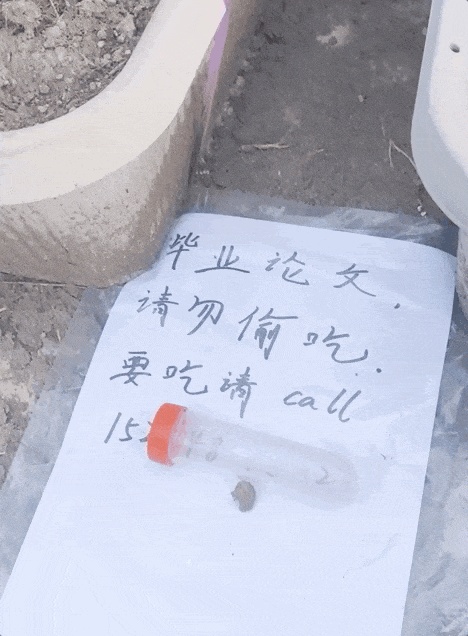 毕业论文.
请勿偷吃.
要吃请 call
152